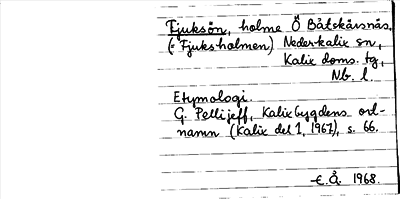 Tjuksön, holme Ö Båtskärsnäs,
(= Tjuksholmen) Nederkalix sn,
Kalix doms. tg,
Nb. l.
Etymologi.
G. Pellijeff, Kalixbygdens ort-
namn (Kalix del 1, 1967), s. 66.
E.Å. 1968.